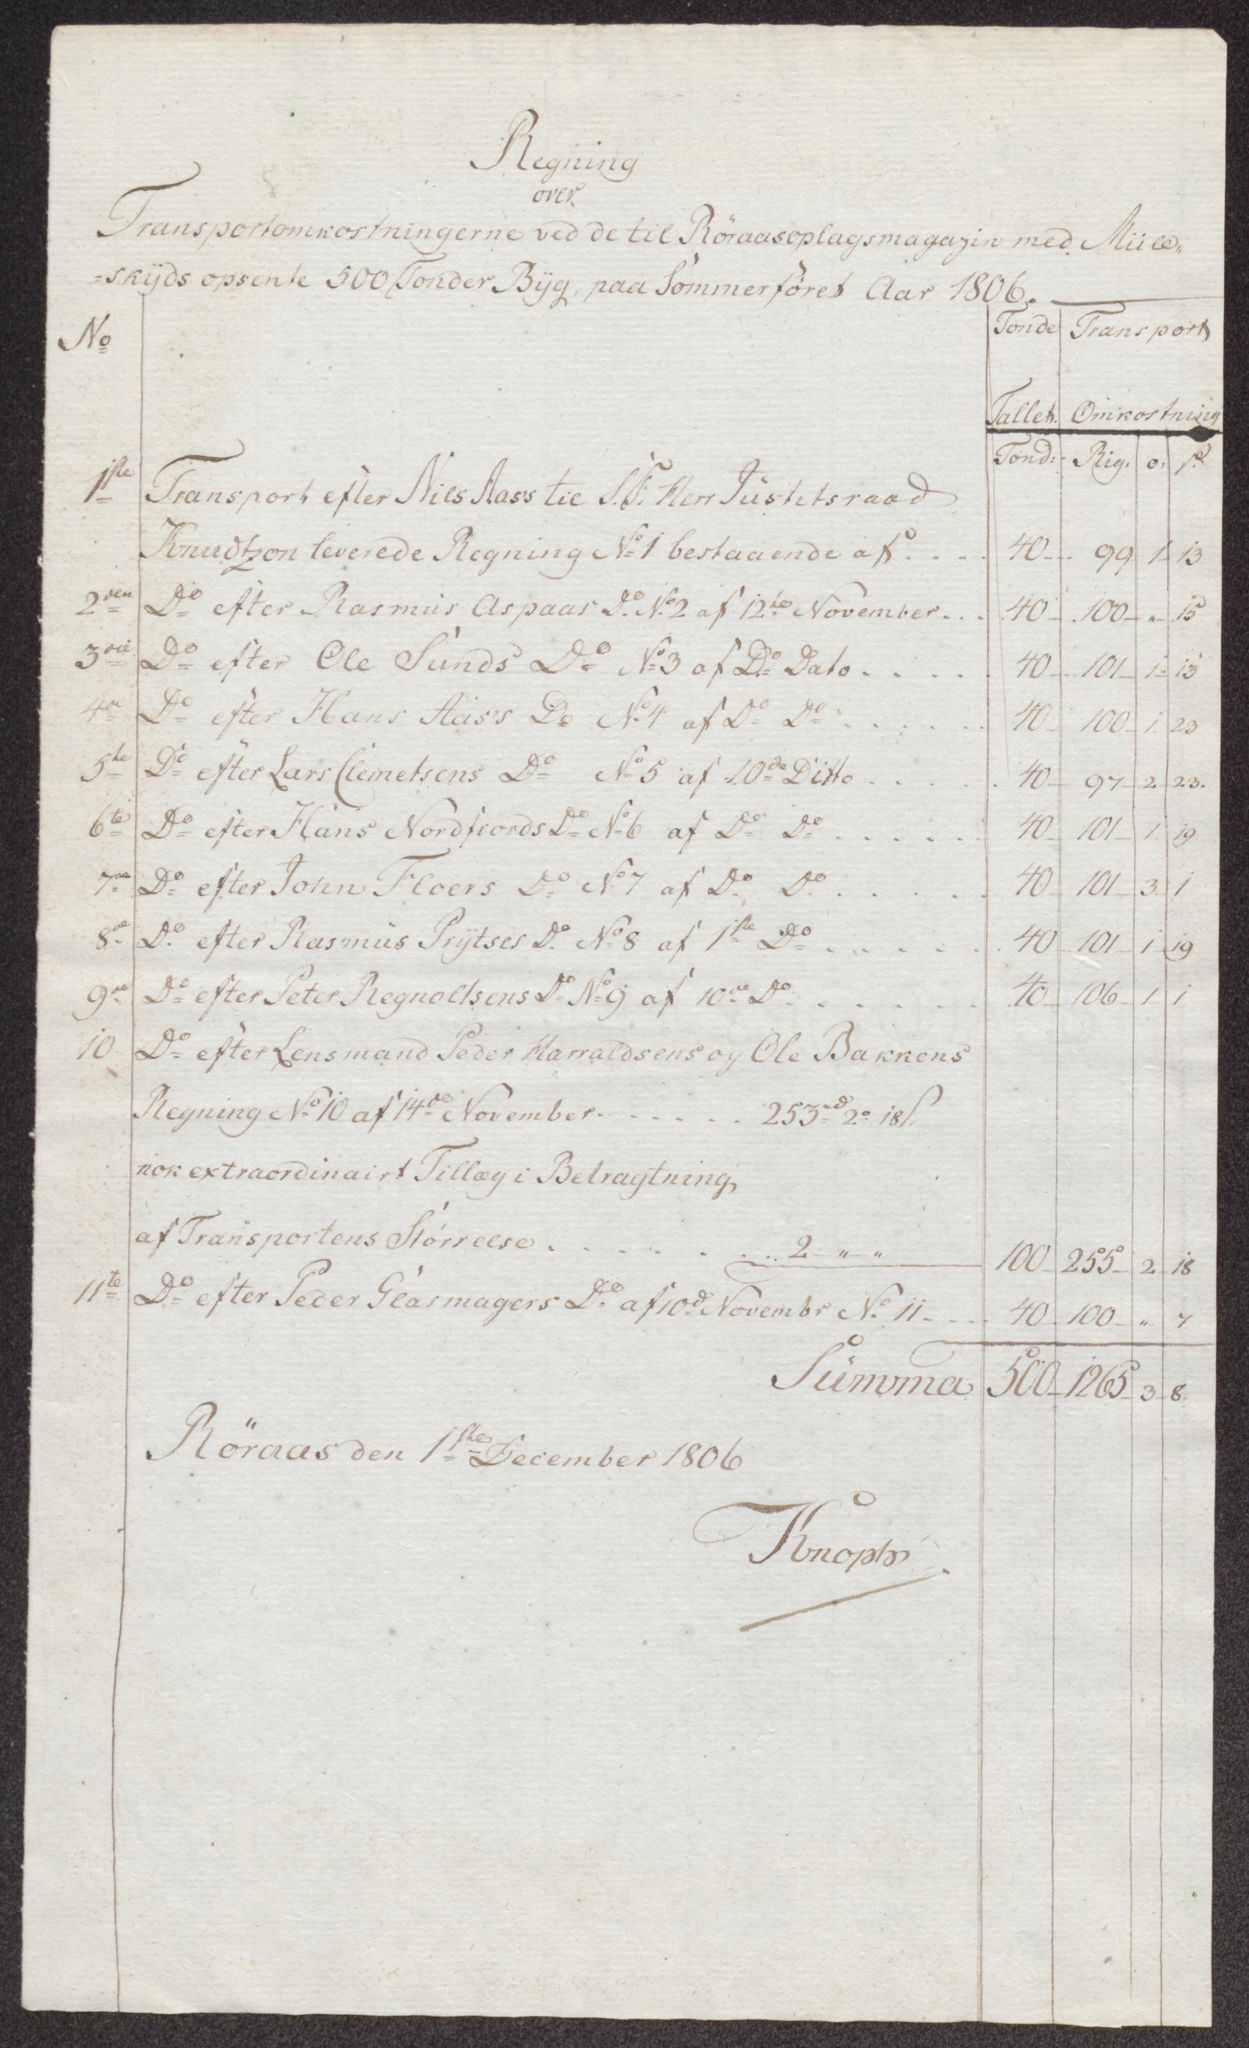 Regning
over
Transportomkostningerne ved de til Röraasoplagsmagazin med Müle„
=skÿds opsente 500 Tonder Bÿg, paa Sommerføret Aar 1806.
No Tonde Transport
Tallet. Omkostning
Tond. Rig. o. s.
1ste Transport efter Niels Aass til S.T. Herr Jüstitsraad
Knudtzon leverede Regning No 1 bestaaende af . . . . 40 99 1 13
2den Do efter Rasmus Aspaas Do No 2 af 12te November . . . 40 100 „ 15
3die Do efter Ole Sunds Do No 3 af Do Dato . . . . . 40 101 1 13
4de Do efter Hans Aass Do No 4 af Do Do . . . . . 40 100 1 23
5te Do efter Lars Clemetsens Do No 5 af 10de Ditto . . . . 40 97 2 23.
6te Do efter Hans Nordfiords Do No 6 af Do Do . . . . . 40 101 1 19
7de Do efter John Floers Do No 7 af Do Do . . . . . 40 101 3 1
8de Do efter Rasmus Prÿtses Do No 8 af 1ste Do . . . . . 40 101 1 19
9de Do efter Peter Regnoltsens Do No 9 af 10de Do . . . . . 40 106 1 1
10 Do efter Lensmand Peder Harraldsens og Ole Bakkens
Regning No 10 af 14de November . . . . . 253rd 2o 18s.
nok extraordinairt Tillæg i Betragtning
af Transportens Störrelse . . . . . . 2 „ „ 100 255 2 18
11te Do efter Peder Glasmagers Do af 10de Novembr No 11 . . . 40 100 „ 7
Sümma 500 1265 3 8.
Röraas den 1ste December 1806
Knoph